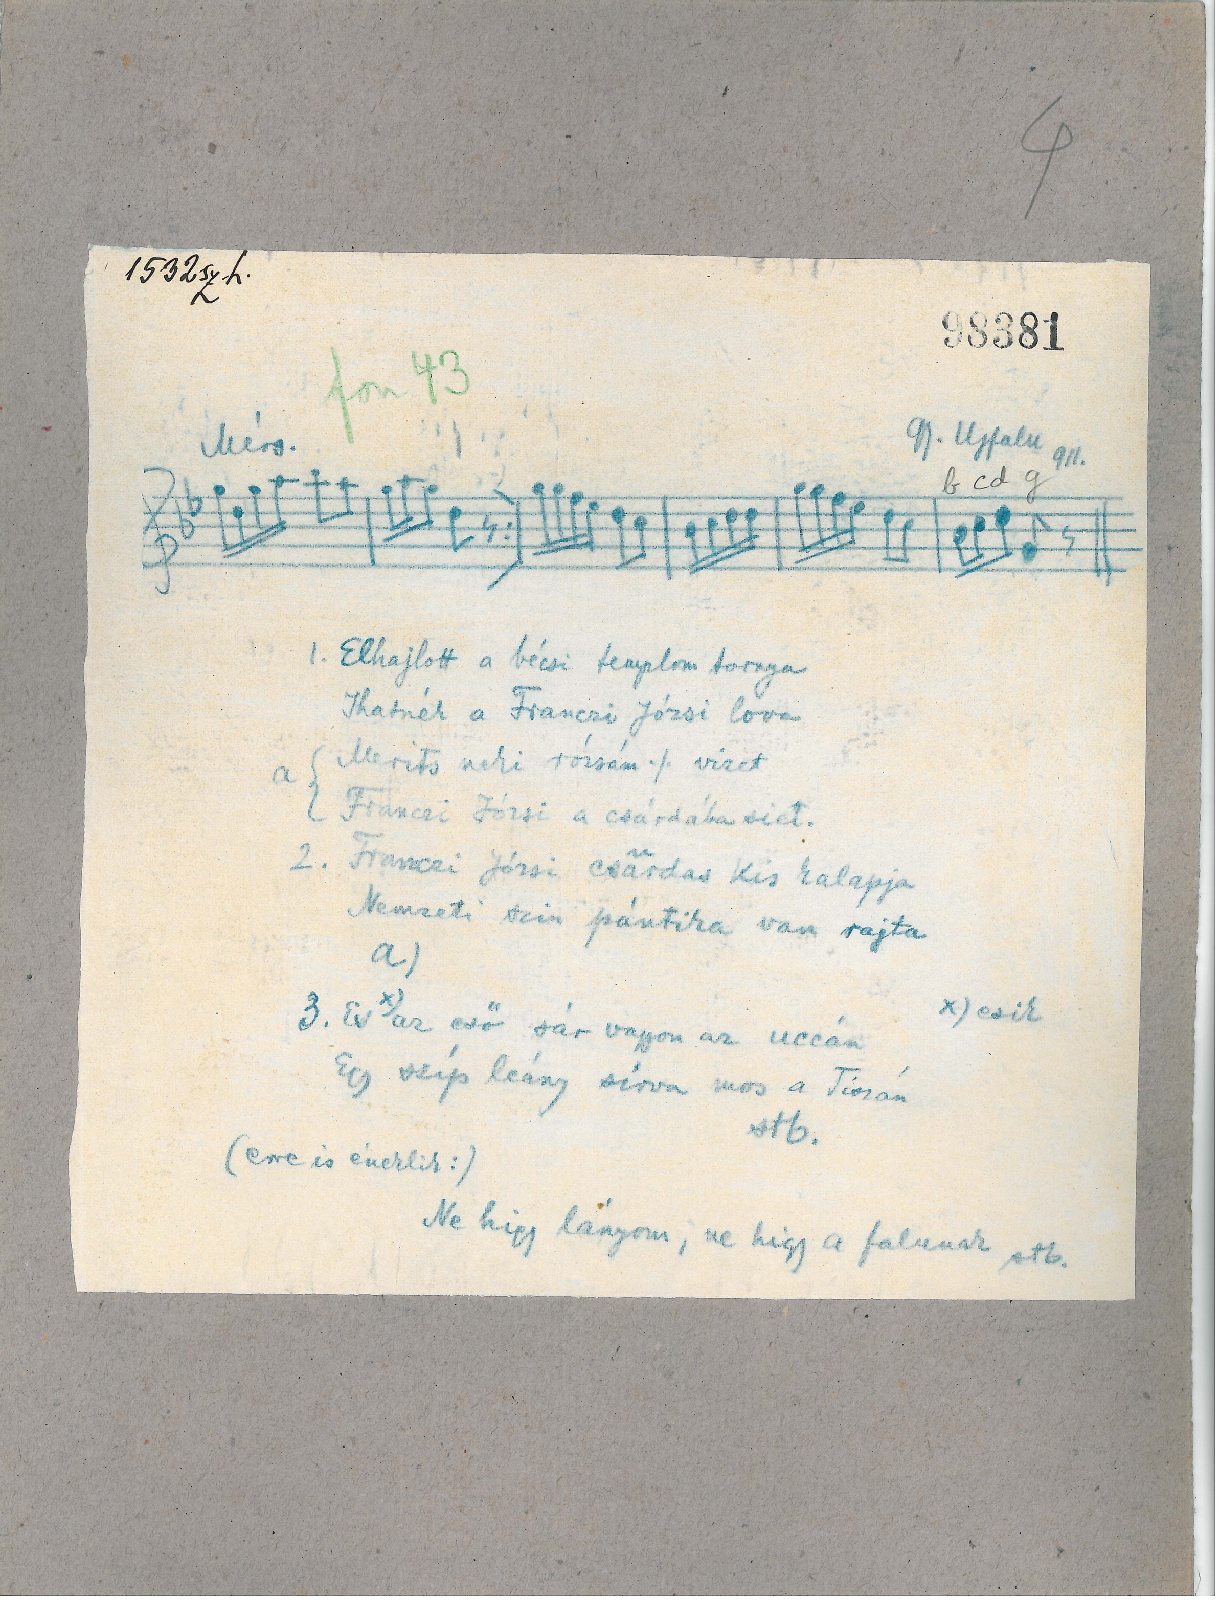 4
1532 sz. h.
98381
fon 43
Mérs.
Gy. Ujfalu 911.
b c d g
1. Elhajlott a bécsi templom tornya
Ihatnék a Franczi Józsi lova
a { Merits neki rózsám ·/· vizet
Franczi Józsi a csárdába siet.
2. Franczi Józsi csárdas kis kalapja
Nemzeti szin pántika van rajta
a)
3. Es x) az eső sár vagyon az uccán
x) csik
Egy szép leány sirva mos a Tiszán
stb.
(erre is éneklik:)
Ne higy lányom, ne higy a falunak stb.